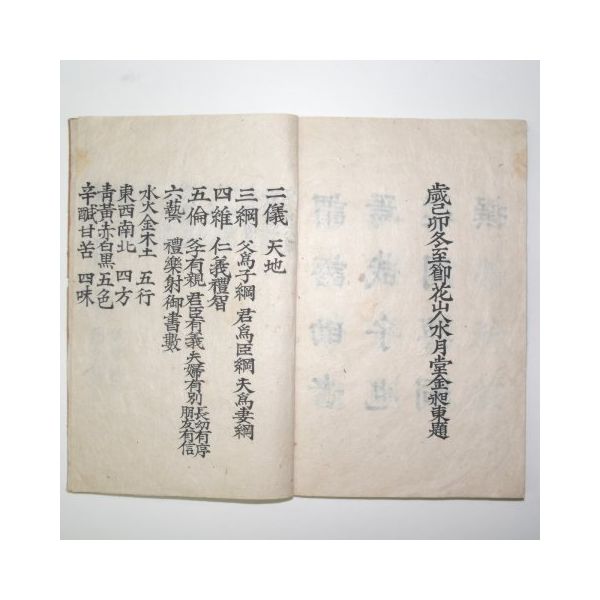 歲己卯冬至節花山人水月堂金昶東題
二儀 天地
三綱 父爲子綱 君爲臣綱 夫爲妻綱
四維 仁義禮智
五倫 父子有親 君臣有義 夫婦有別 長幼有序 朋友有信
六藝 禮樂射御書數
水火金木土 五行
東西南北 四方
靑黃赤白黑 五色
辛鹹甘苦 四味